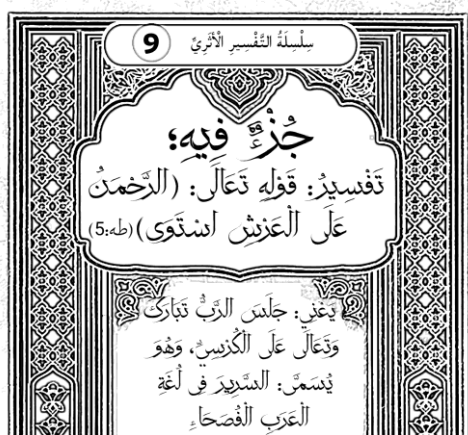 سِلْسِلَةُ التَّفْسِيرِ الْأَثَرِيِّ 9
جُزْءٌ فِيهِ؛
تَفْسِيرُ: قَوْلِهِ تَعَالَى: (الرَّحْمَنُ
عَلَى الْعَرْشِ اسْتَوَى) (طه:5)
يَعْنِي: جَلَسَ الرَّبُّ تَبَارَكَ
وَتَعَالَى عَلَى الْكُرْسِيِّ، وَهُوَ
يُسَمَّى: السَّرِيرَ فِي لُغَةِ
الْعَرَبِ الْفُصَحَاءِ